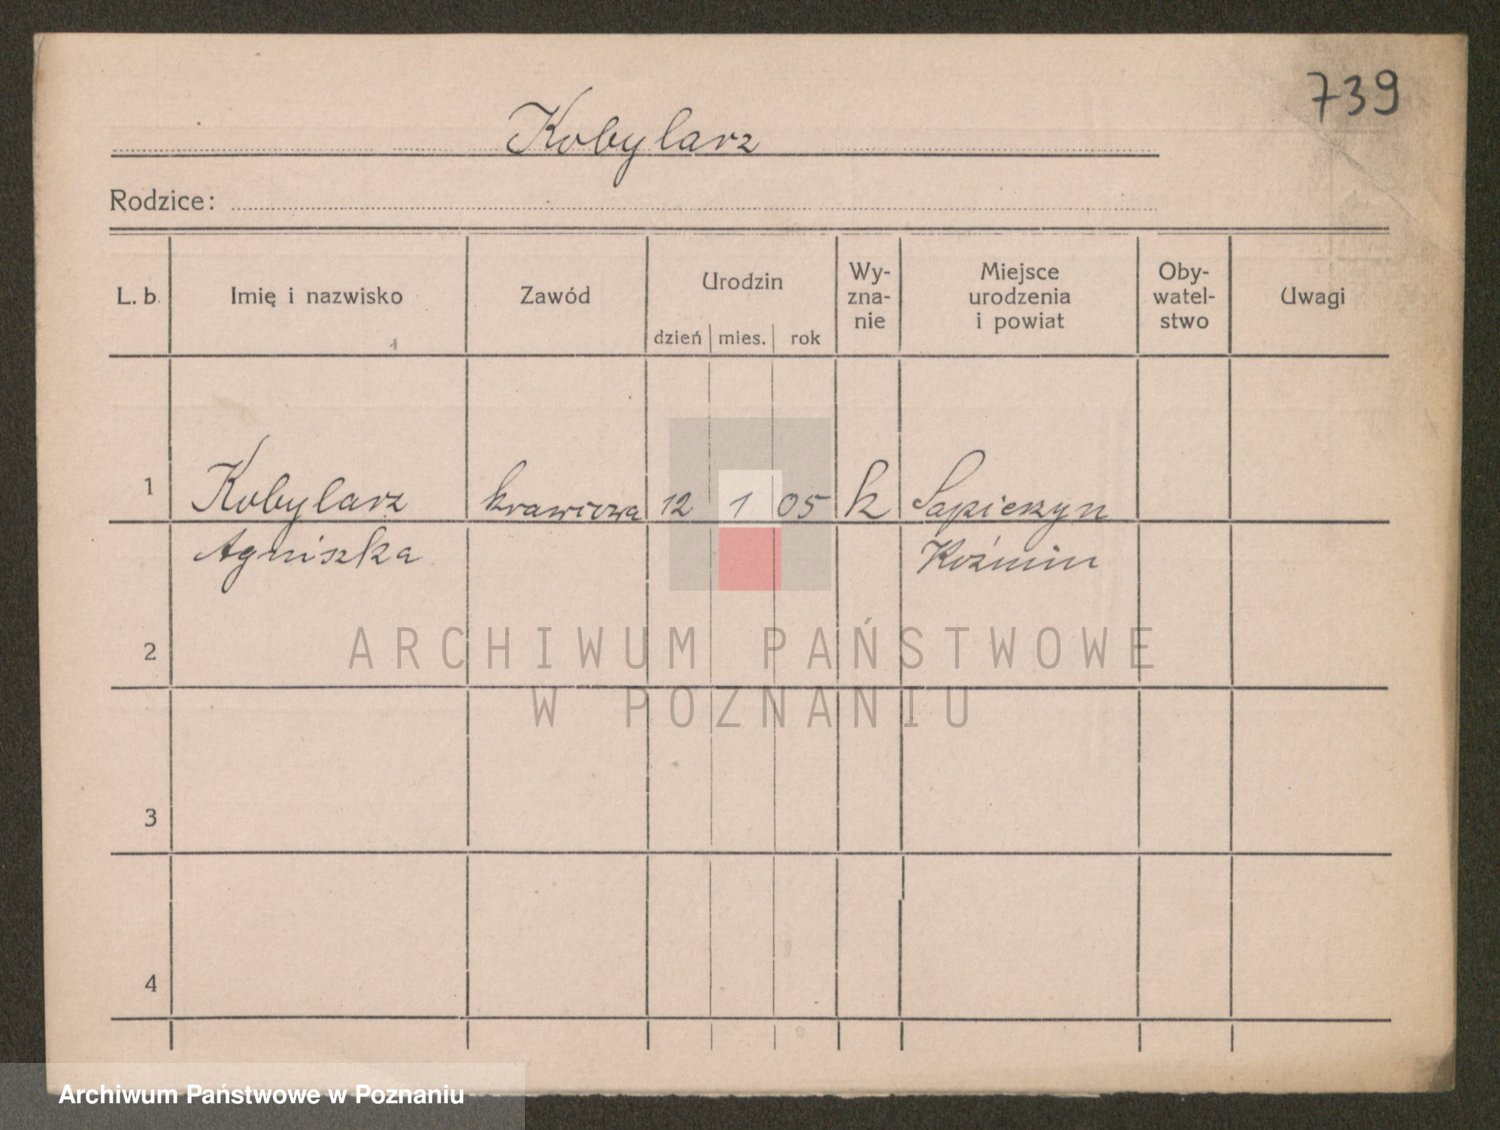 739
Kobylarz
Rodzice:
L. b. Imię i nazwisko Zawód Urodzin dzień mies. rok Wy-zna-nie Miejsce urodzenia i powiat Oby-watel-stwo Uwagi
1 Kobylarz krawcowa 12 1 05 k Sapieżyn
Agniszka Koźmin
2
3
4
ARCHIWUM PAŃSTWOWE
W POZNANIU
Archiwum Państwowe w Poznaniu